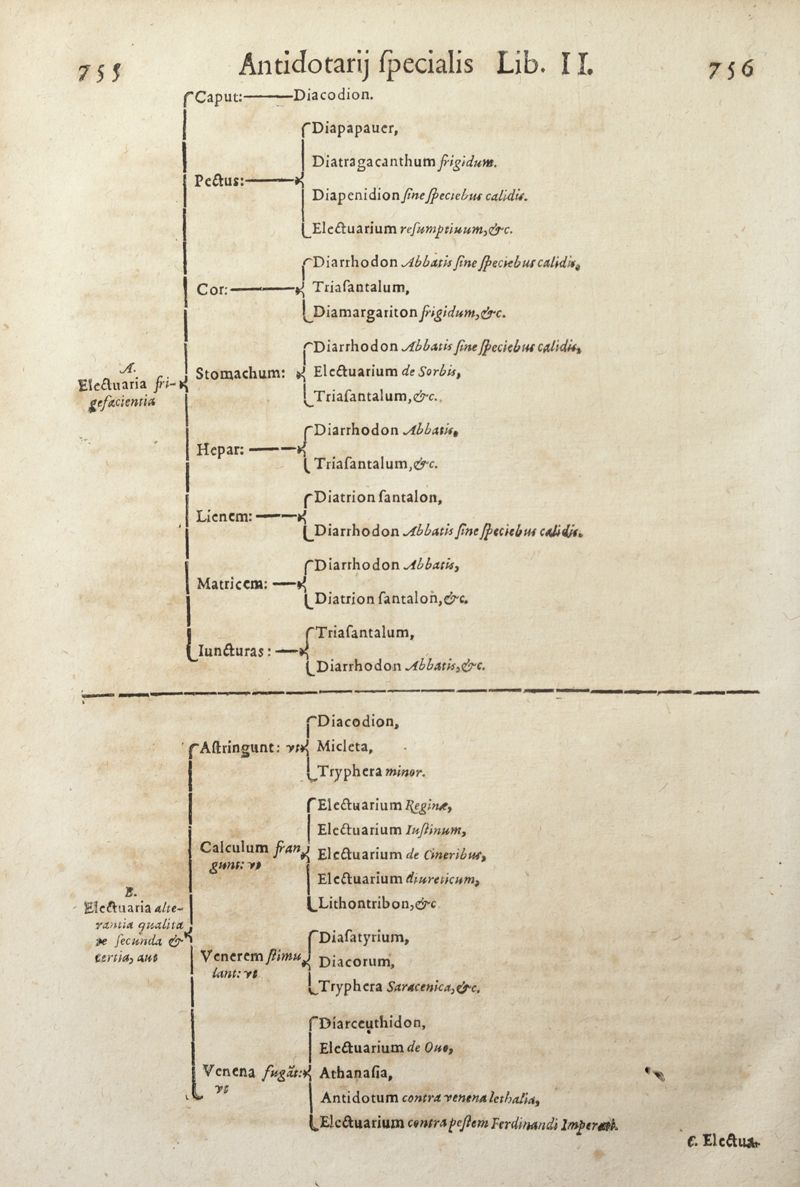 755 Antidotarij ſpecialis Lib. II. 756
Caput: Diacodion.
Diapapauer,
Diatragacanthum frigidum.
Pectus:
Diapenidion ſine ſpeciebus calidis.
Electuarium reſumptiuum, &c.
Diarrhodon Abbatis ſine ſpeciebus calidis,
Cor: Triaſantalum,
Diamargariton frigidum, &c.
Diarrhodon Abbatis ſine ſpeciebus calidis,
A.
Stomachum: Electuarium de Sorbis,
Electuaria fri-
gefacientia
Triaſantalum, &c.
Diarrhodon Abbatis,
Hepar:
Triaſantalum, &c.
Diatrion ſantalon,
Lienem:
Diarrhodon Abbatis ſine ſpeciebus calidis.
Diarrhodon Abbatis,
Matricem:
Diatrion ſantalon, &c.
Triaſantalum,
Iuncturas:
Diarrhodon Abbatis, &c.
Diacodion,
Aſtringunt: vt Micleta,
Tryphera minor.
Electuarium Reginæ,
Electuarium Iuſtinum,
Calculum fran
gunt: vt
Electuarium de Cineribus,
Electuarium diureticum,
B.
Electuaria alte-
rantia qualita
te ſecunda &
tertia, aut
Lithontribon, &c
Diaſatyrium,
Venerem ſtimu
lant: vt
Diacorum,
Tryphera Saracenica, &c.
Diarceuthidon,
Electuarium de Ouo,
Venena fugāt:
vt
Athanaſia,
Antidotum contra venena lethalia,
Electuarium contra peſtem Ferdinandi Imperat.
C. Electua-